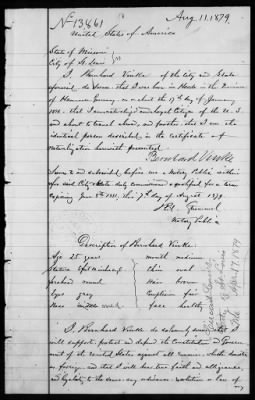 No 13861
Aug. 11. 1879
United States of America
State of Missouri
City of St. Louis } ss
I, Bernhard Vinke of the City and State
aforesaid, do swear that I was born in in the Province
of Hannover Germany, on or about the 17th day of January
that I am a naturalized and loyal Citizen of the U.S.
and about to travel abroad, and further that I am the
identical person described in the certificate of
naturalization herewith presented.
Bernhard Vinke
Sworn to and subscribed before me a Notary Public within
for said City & State duly commissioned & qualified for a term
expiring June 8th 1881, this 7th day of August 1879
Notary Public
Description of Bernhard Vinke:
Age 25 years mouth medium
Stature 5 feet inches chin oval
forehead round Hair brown
Eyes grey Complexion fair
Nose face healthy
I, Bernhard Vinke do solemnly swear that I
will support, protect and defend the Constitution and Govern
ment of the United States against all enemies, whether domestic
or foreign, and that I will bear true faith and allegiance,
and loyalty to the same, any ordinance, resolution or law of
any